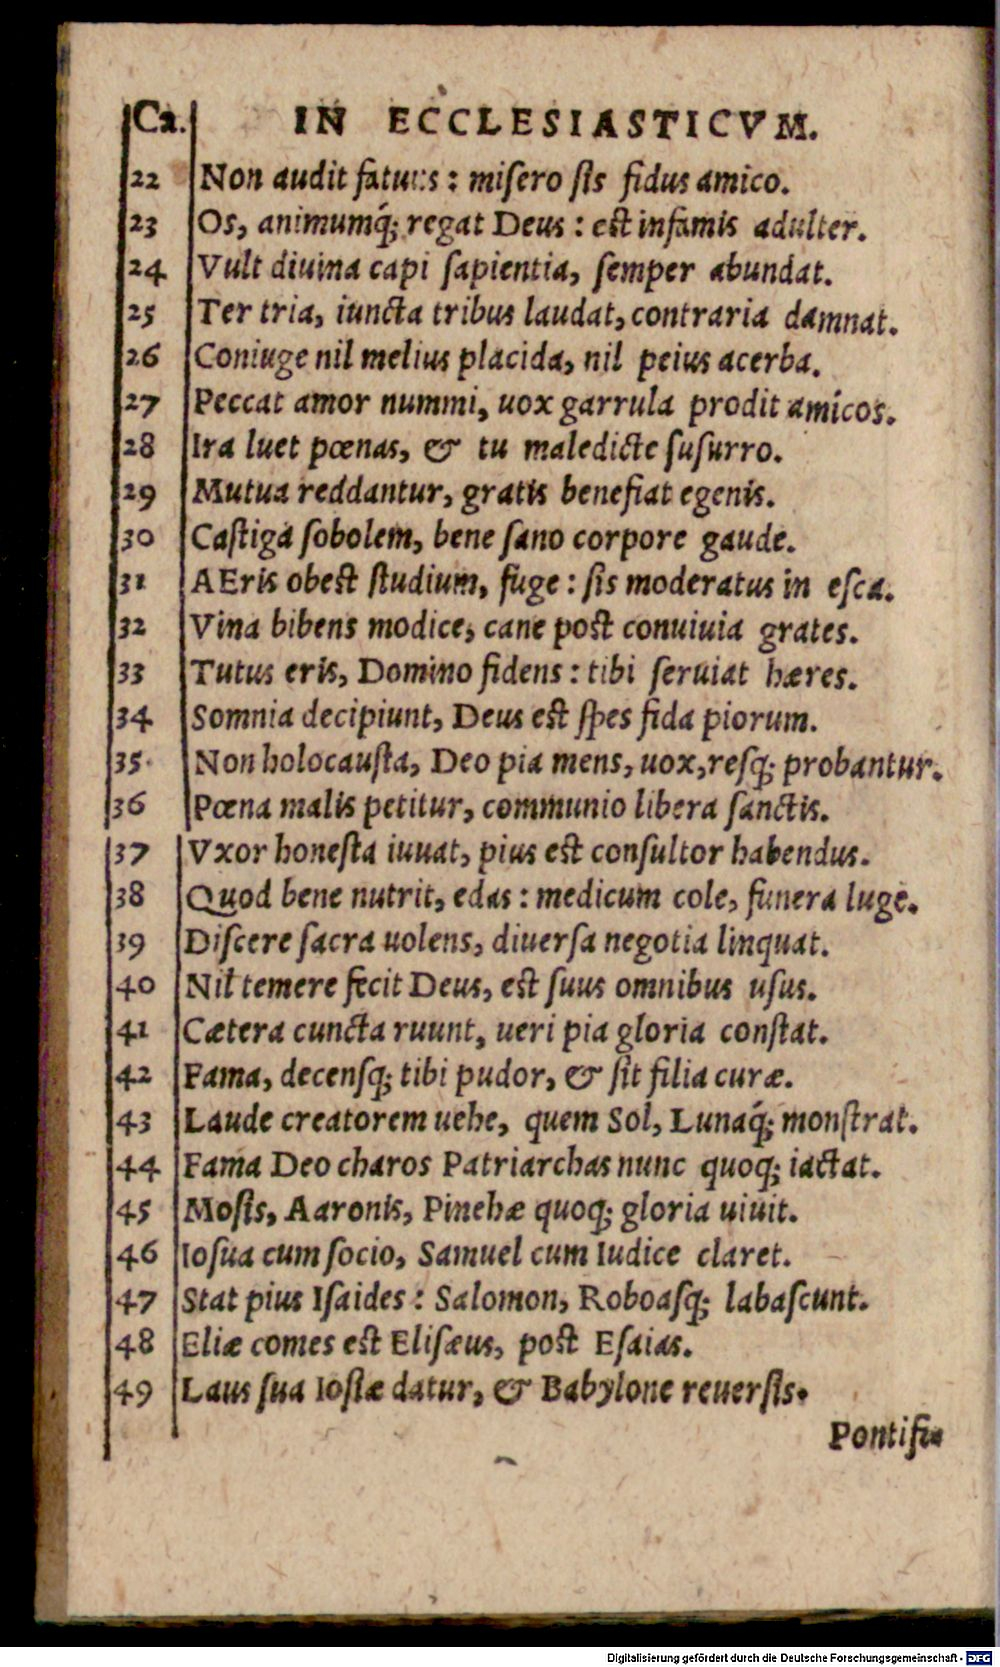 Ca. IN ECCLESIASTICVM.
22 Non audit fatuus : miſero ſis fidus amico.
23 Os, animumq́; regat Deus : est infamis adulter.
24 Vult diuina capi ſapientia, ſemper abundat.
25 Ter tria, iuncta tribus laudat, contraria damnat.
26 Coniuge nil melius placida, nil peius acerba.
27 Peccat amor nummi, uox garrula prodit amicos.
28 Ira luet pœnas, & tu maledicte ſuſurro.
29 Mutua reddantur, gratis benefiat egenis.
30 Caſtiga ſobolem, bene ſano corpore gaude.
31 AEris obest ſtudium, fuge : ſis moderatus in eſca.
32 Vina bibens modice, cane post conuiuia grates.
33 Tutus eris, Domino fidens : tibi ſeruiat hæres.
34 Somnia decipiunt, Deus est ſpes fida piorum.
35 Non holocauſta, Deo pia mens, uox, reſq; probantur.
36 Pœna malis petitur, communio libera ſanctis.
37 Vxor honeſta iuuat, pius est conſultor habendus.
38 Quod bene nutrit, edas : medicum cole, funera luge.
39 Diſcere ſacra uolens, diuerſa negotia linquat.
40 Nil temere fecit Deus, est ſuus omnibus uſus.
41 Cætera cuncta ruunt, ueri pia gloria conſtat.
42 Fama, decenſq; tibi pudor, & ſit filia curæ.
43 Laude creatorem uehe, quem Sol, Lunaq́; monſtrat.
44 Fama Deo charos Patriarchas nunc quoq; iactat.
45 Moſis, Aaronis, Pinehæ quoq; gloria uiuit.
46 Ioſua cum ſocio, Samuel cum Iudice claret.
47 Stat pius Iſaides : Salomon, Roboaſq; labaſcunt.
48 Eliæ comes est Eliſæus, post Eſaias.
49 Laus ſua Ioſiæ datur, & Babylone reuerſis.
Pontifi-
Digitalisierung gefördert durch die Deutsche Forschungsgemeinschaft - DFG